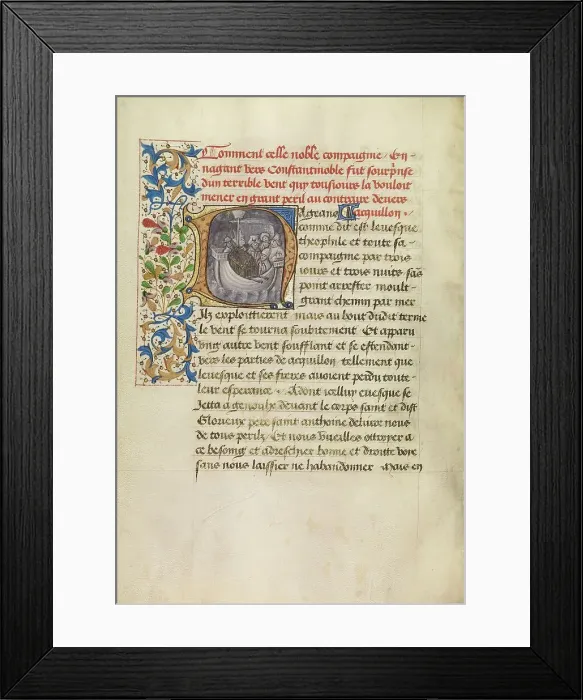 Comment celle noble compaignie En
nagant vers Constantinoble fut sourprise
dun terrible vent quy tousiours la vouloit
mener en grant peril au contraire devers
A grano Acquillon.
comme dit est levesque
theophile et toute sa
compaignie par trois
iours et trois nuits sãs
point arrester moult
grant chemin par mer
Ilz exploittierent mais au bout dudit terme
le vent se tourna soubitement Et apparu
vng autre vent soufflant et se estendant
vers les parties de acquillon tellement que
levesque et ses freres avoient perdu toute
leur esperance. Adont icelluy evesque se
Jetta a genoulx devant le corps saint et dist
Glorieux pere saint anthoine delivre nous
de tous perilz Et nous vueilles ottroyer a
ce besoing et adreschier bonne et droitte voye
sans nous laissier ne habandonner Mais en